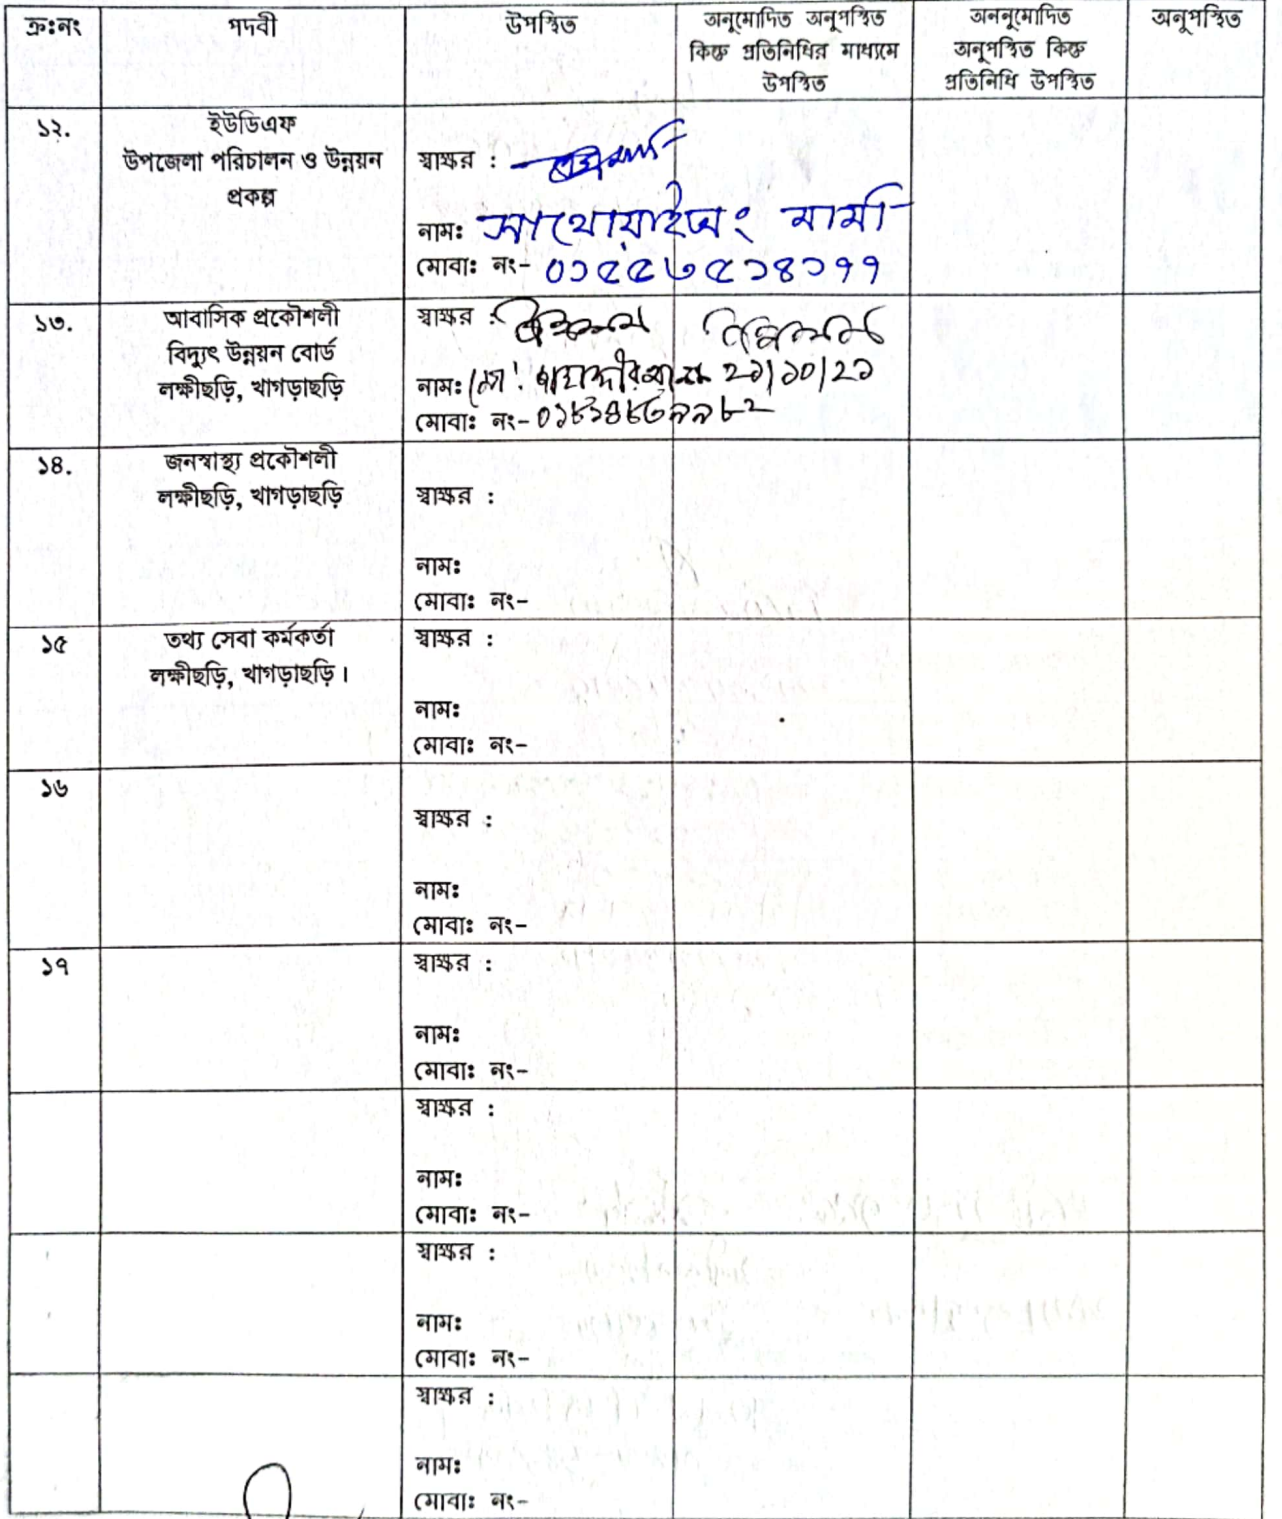 ক্রঃনং পদবী উপস্থিত অনুমোদিত অনুপস্থিত কিন্তু প্রতিনিধির মাধ্যমে উপস্থিত অননুমোদিত অনুপস্থিত কিন্তু প্রতিনিধি উপস্থিত অনুপস্থিত
১২. ইউডিএফ
উপজেলা পরিচালন ও উন্নয়ন
প্রকল্প
স্বাক্ষর :
নাম: সাথোয়াইঅং মার্মা
মোবাঃ নং- ০১৫৫৬৫১৪১৭৭
১৩. আবাসিক প্রকৌশলী
বিদ্যুৎ উন্নয়ন বোর্ড
লক্ষীছড়ি, খাগড়াছড়ি
স্বাক্ষর :
নাম: মো: ২১/১০/২১
মোবাঃ নং-
১৪. জনস্বাস্থ্য প্রকৌশলী
লক্ষীছড়ি, খাগড়াছড়ি
স্বাক্ষর :
নাম:
মোবাঃ নং-
১৫ তথ্য সেবা কর্মকর্তা
লক্ষীছড়ি, খাগড়াছড়ি।
স্বাক্ষর :
নাম:
মোবাঃ নং-
১৬
স্বাক্ষর :
নাম:
মোবাঃ নং-
১৭
স্বাক্ষর :
নাম:
মোবাঃ নং-
স্বাক্ষর :
নাম:
মোবাঃ নং-
স্বাক্ষর :
নাম:
মোবাঃ নং-
স্বাক্ষর :
নাম:
মোবাঃ নং-